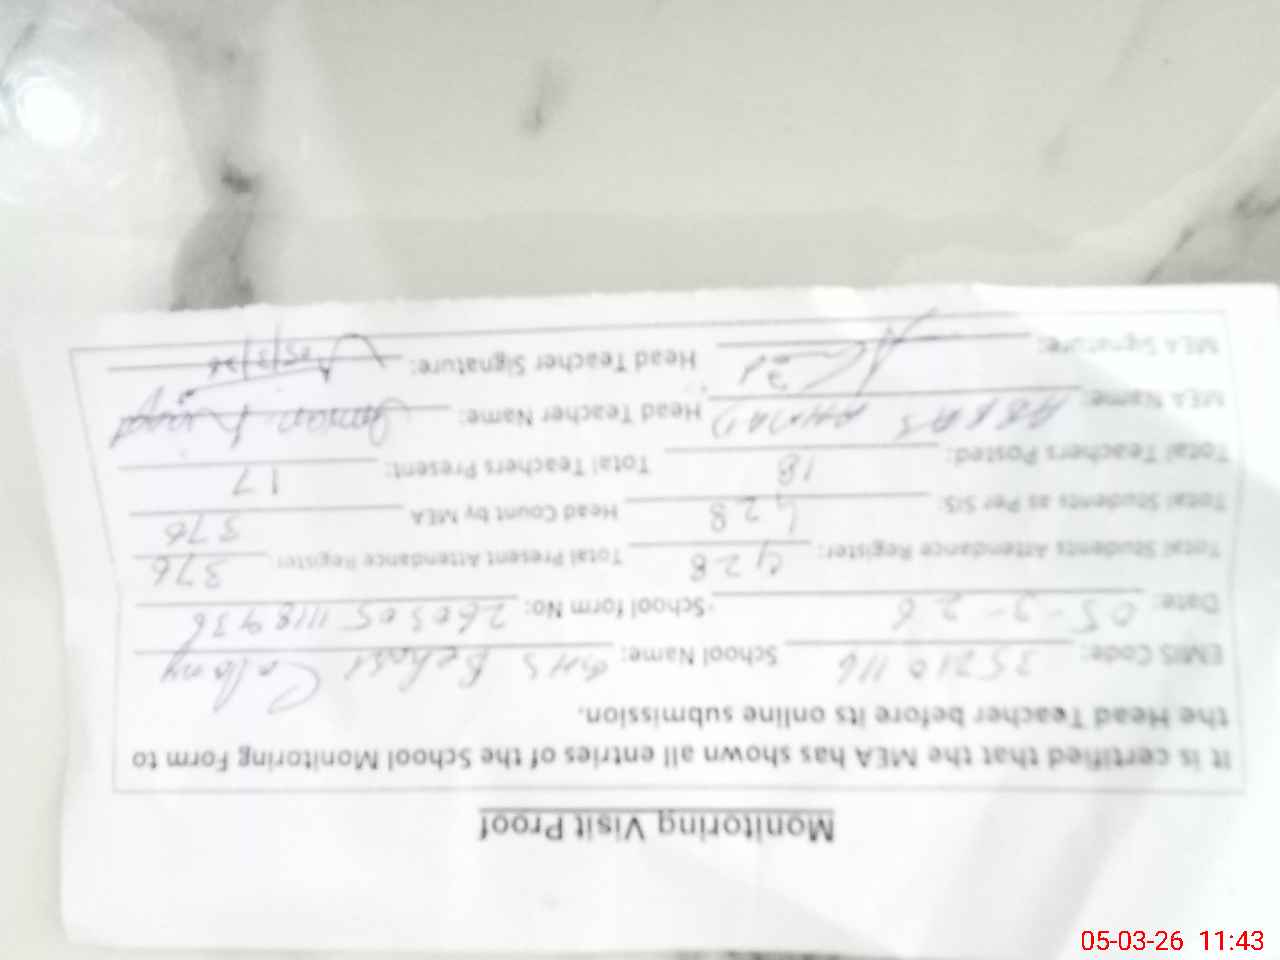 Monitoring Visit Proof
It is certified that the MEA has shown all entries of the School Monitoring Form to
the Head Teacher before its online submission.
EMIS Code: 35210116 School Name: GHS Colony
Date: 05-3-26 School form No: 260305 1118936
Total Students Attendance Register: 428 Total Present Attendance Register 376
Total Students as Per SIS: 428 Head Count by MEA 376
Total Teachers Posted: 18 Total Teachers Present: 17
MEA Name: ABBAS AHMAD Head Teacher Name:
MEA Signature: Head Teacher Signature: 05/3/26
05-03-26 11:43